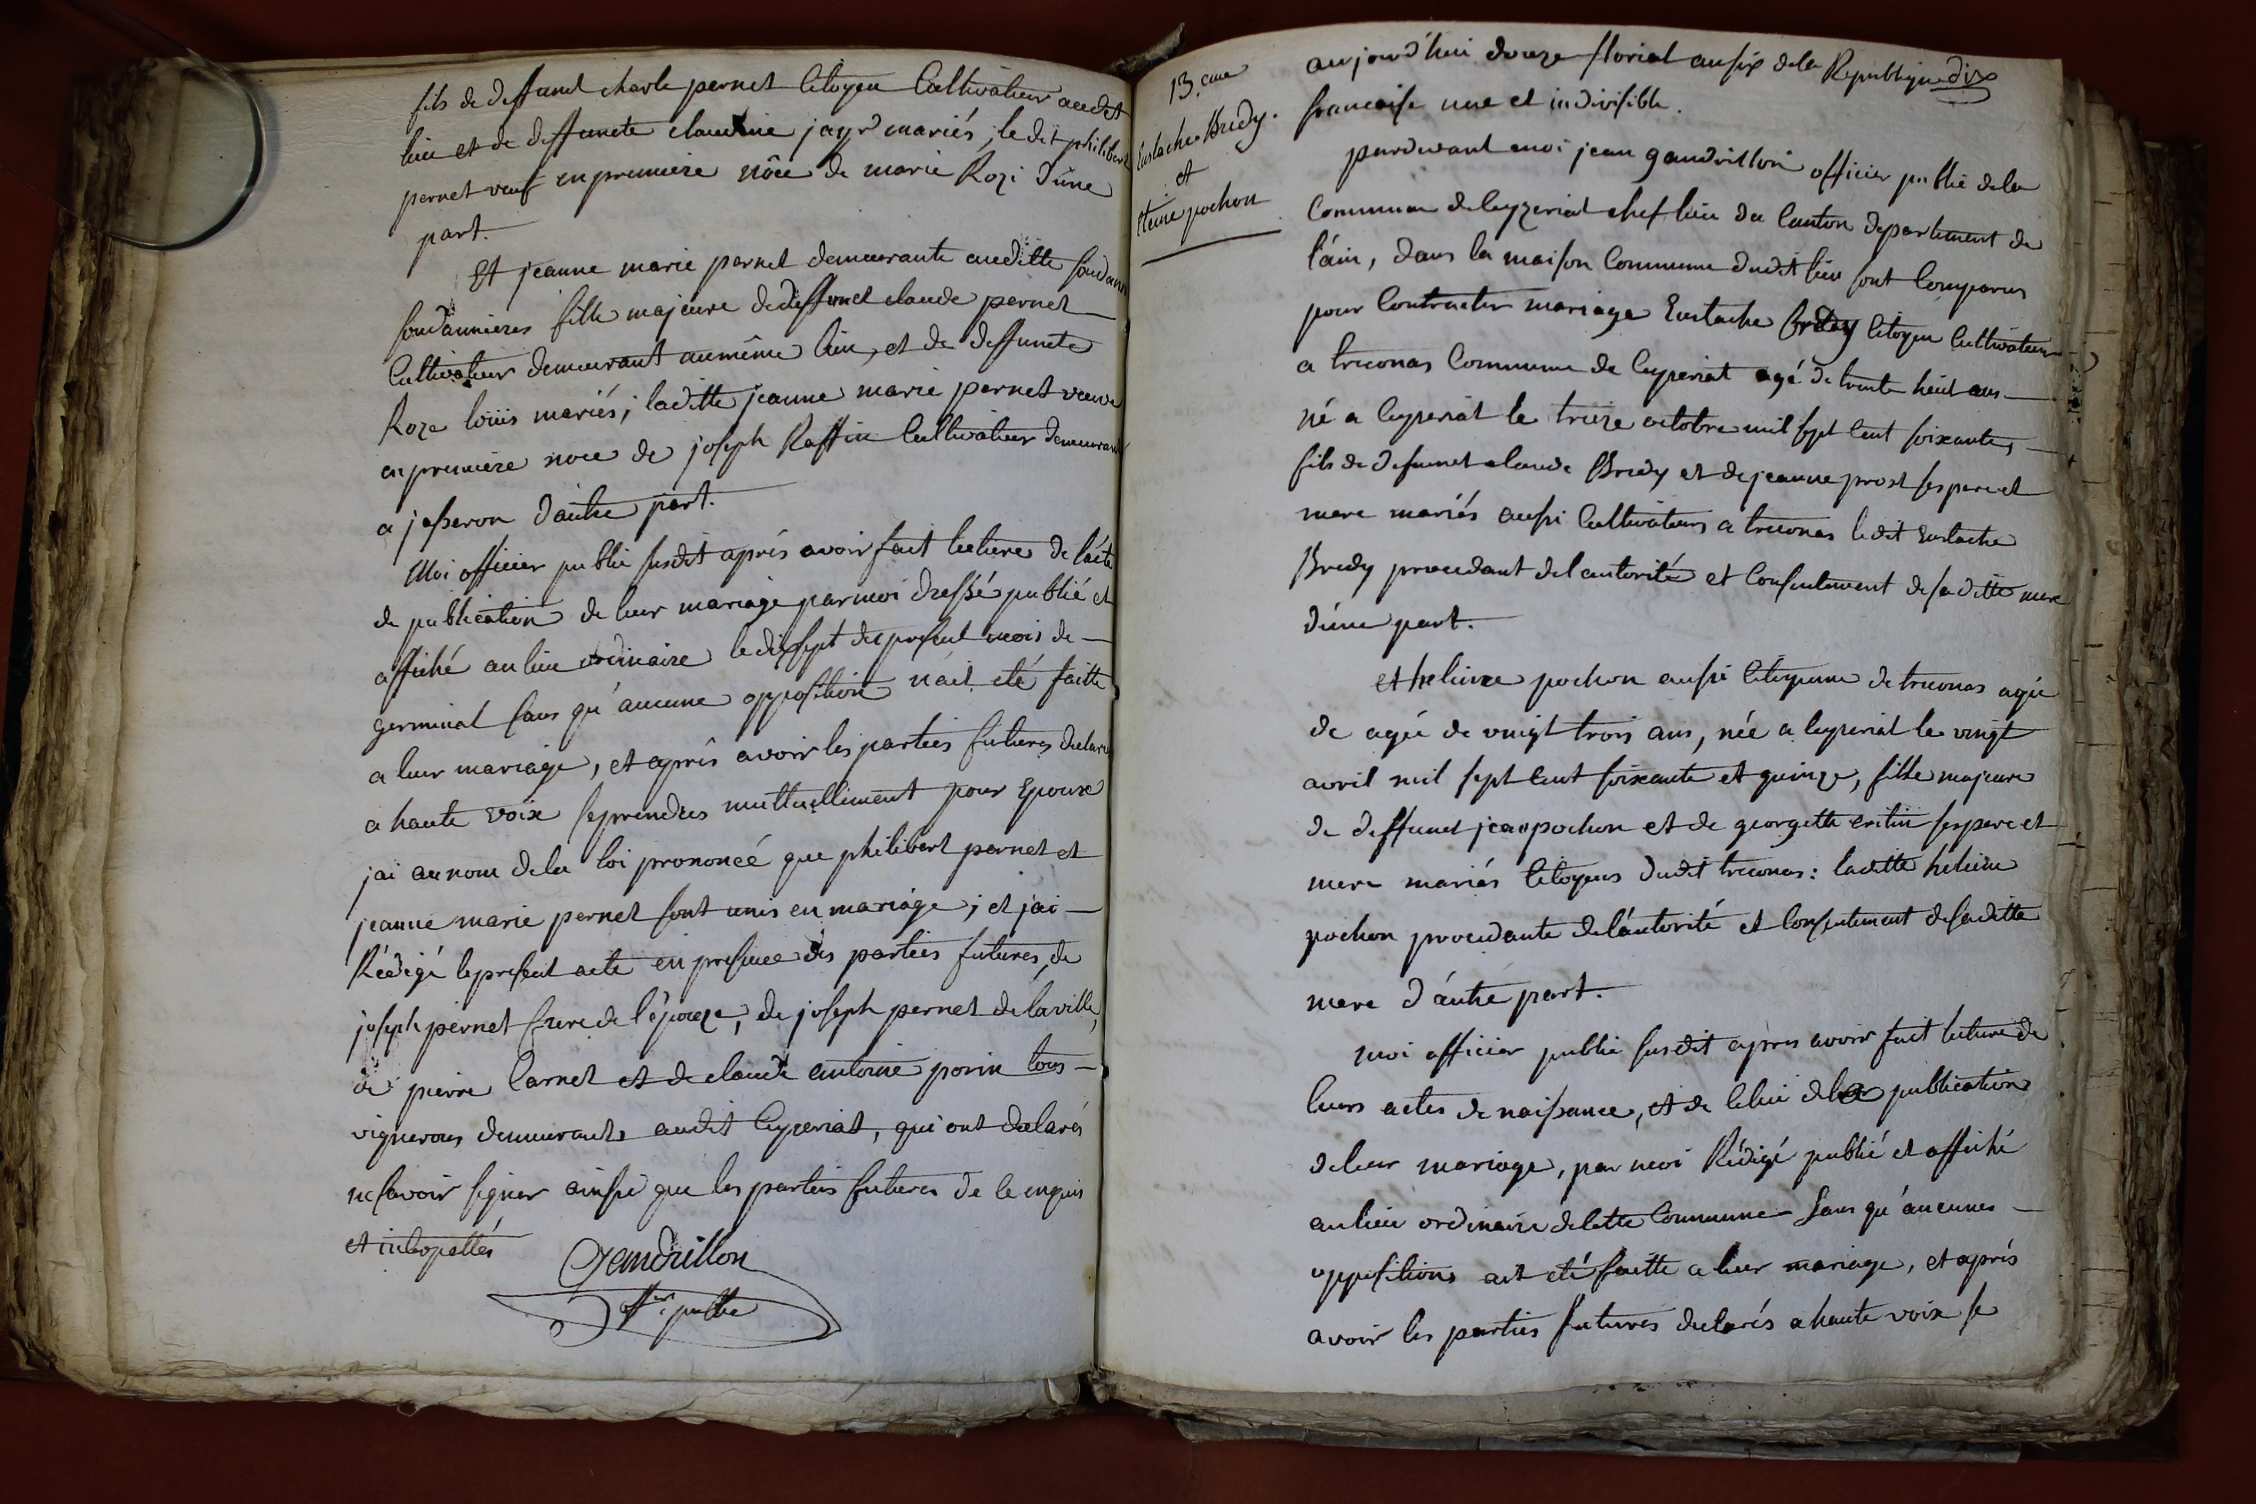 fils de deffunct charle pernet Citoyen Cultivateur audit
lieu et de deffuncte claudine jayr mariés, le dit philibert
pernet veuf en premiere nôce de marie Rozi d'une
part.
Et jeanne marie pernet demeurante auditte
soudannieres fille majeure de deffunct claude pernet
Cultivateur demeurant au même lieu, et de deffuncte
Roze loüis mariés; laditte jeanne marie pernet veuve
en premiere noce de joseph Raffin Cultivateur demeurant
a jasseron d'autre part.
Moi officier public susdit après avoir fait lecture de l'acte
de publication de leur mariage par moi dressé publié et
affiché au lieu ordinaire le dix sept du present mois de
germinal sans qu'aucune opposition n'ait été faitte
a leur mariage, et après avoir les parties futures declaré
a haute voix se prendres muttuellement pour Epoux
jai au nom de la loi prononcé que philibert pernet et
jeanne marie pernet sont unis en mariage; et j'ai
Rédigé le present acte en presence des parties futures, de
joseph pernet frere de l'épouze, de joseph pernet de la ville,
de pierre Carnet et de claude antoine porin tous
vignerons demeurants audit Ceyzeriat, qui ont declarés
ne savoir signer ainsi que les parties futures de ce enquis
et interpellés
Gandrillon
offer. public
13.eme
Eustache Bredy.
et
pochon
dix
aujourd'hui douze floreal an six de la Republique
francaise une et indivisible.
pardevant moi jean gandrillon officier public de la
Commune de Ceyzeriat chef lieu du Canton departement de
l'ain, dans la maison Commune dudit lieu sont Comparus
pour Contracter mariage Eustache Bredy Citoyen Cultivateur
a treconas Commune de Ceyzeriat agé de trente huit ans
né a Ceyzeriat le treize octobre mil sept cent soixante,
fils de defunct claude Bredy et de jeanne prost ses pere et
mere mariés aussi Cultivateurs a treconas le dit Eustache
Bredy procedant de l'autorité et Consentement de sa ditte mere
d'une part.
et heleine pochon aussi Citoyenne de treconas agée
de agée de vingt trois ans, née a Ceyzeriat le vingt
avril mil sept cent soixante et quinze, fille majeure
de deffunct jean pochon et de georgette ses pere et
mere mariés Citoyens dudit treconas: laditte heleine
pochon procedante de l'autorité et Consentement de sa ditte
mere d'autre part.
moi officier public susdit après avoir fait lecture de
leurs actes de naissance, et de celui de la publication
de leur mariage, par moi Rédigé publié et affiché
au lieu ordinaire de cette Commune sans qu'aucunes
oppositions ait été faitte a leur mariage, et après
avoir les parties futures declarés a haute voix se